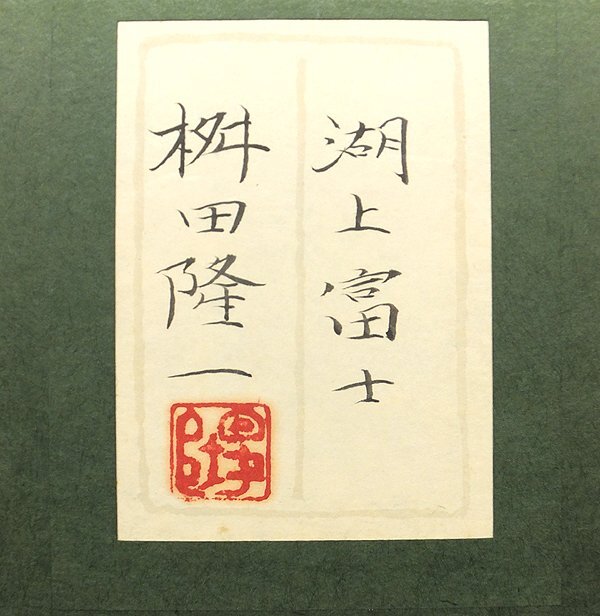 湖上富士
桝田隆一